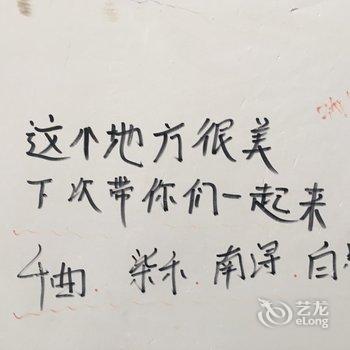 这个地方很美
下次带你们一起来
千曲.柴禾.南浔.白
艺龙
eLong